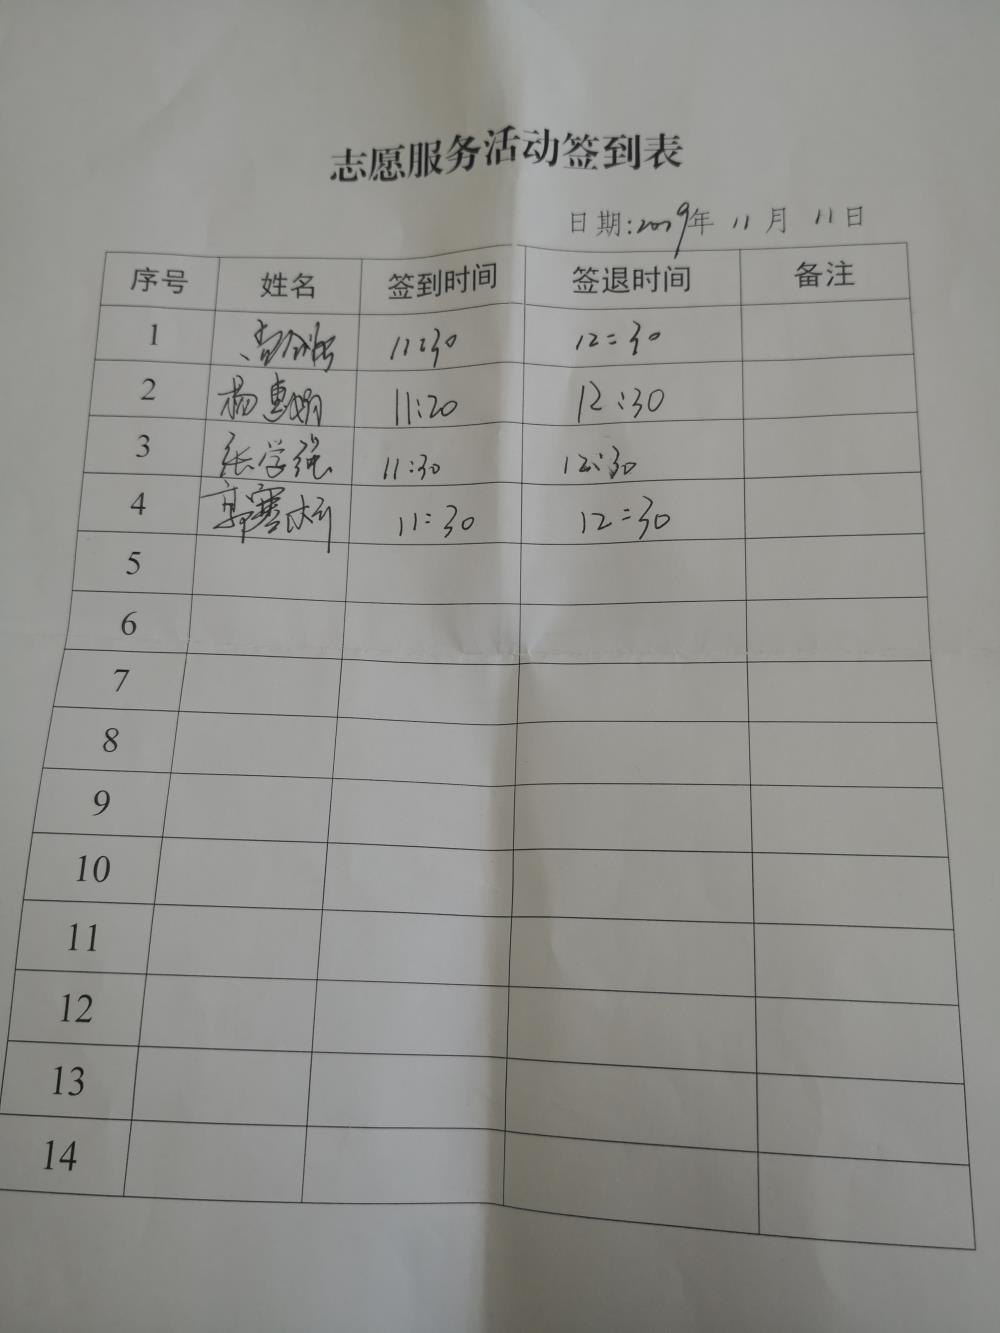 志愿服务活动签到表
日期:2019年 11月 11日
序号 姓名 签到时间 签退时间 备注
1 11:30 12:30
2 杨惠娟 11:20 12:30
3 张学强 11:30 12:30
4 郭赛 11:30 12:30
5
6
7
8
9
10
11
12
13
14